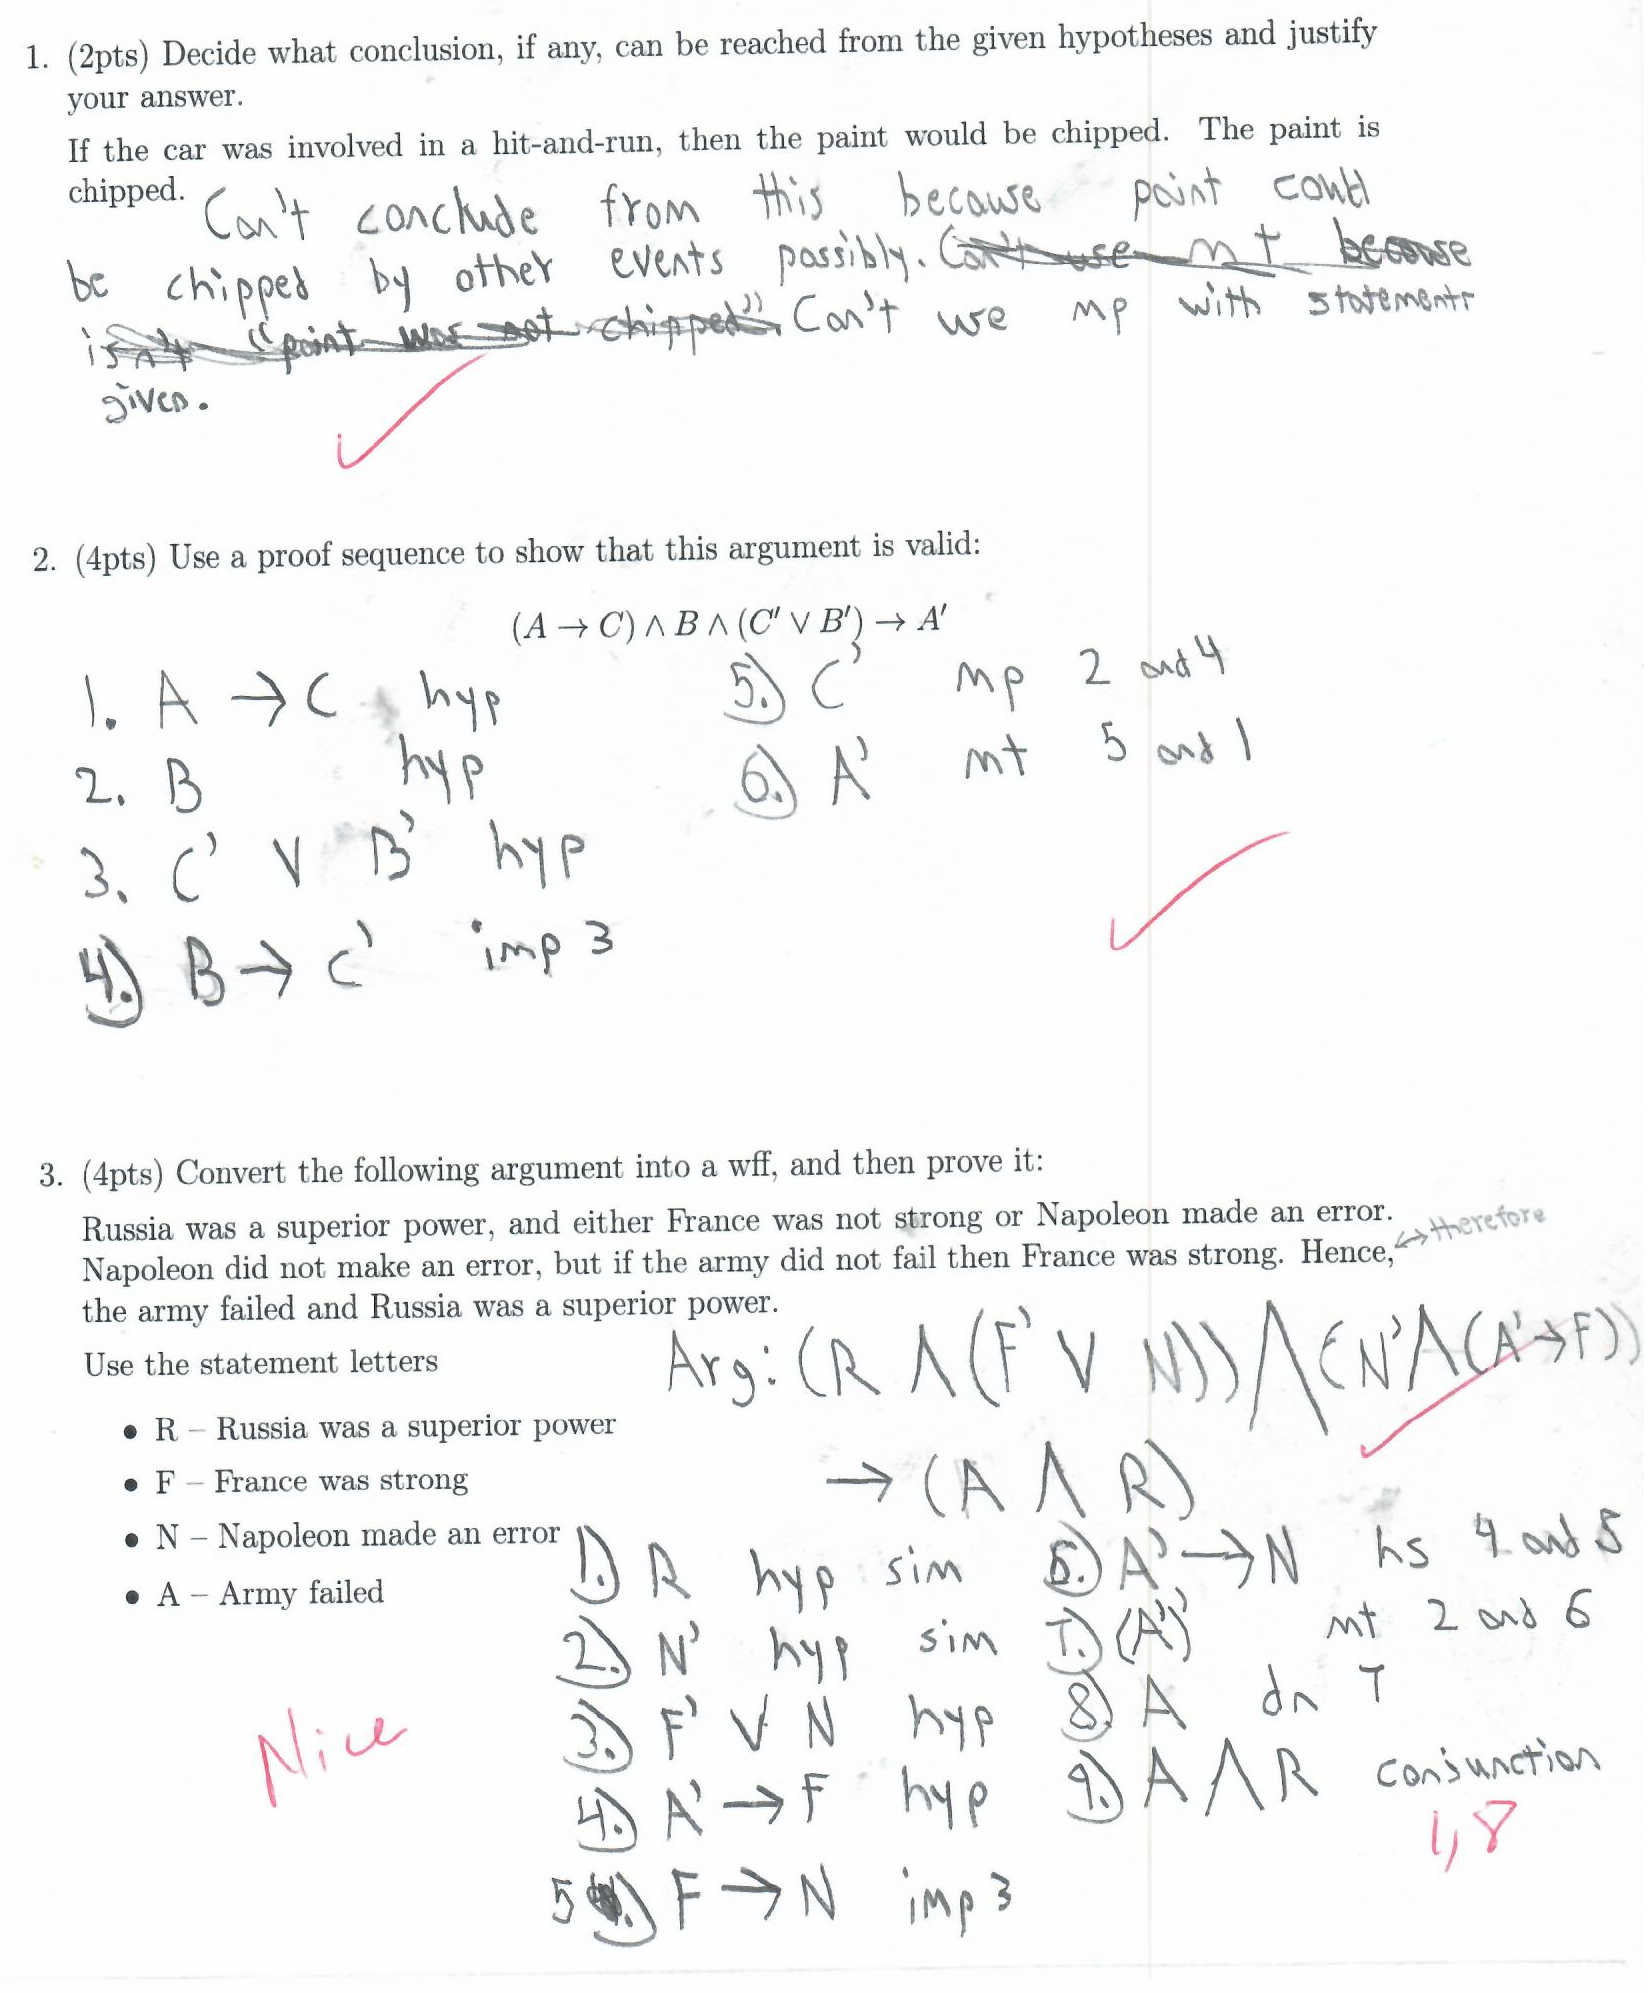 1. (2pts) Decide what conclusion, if any, can be reached from the given hypotheses and justify
your answer.
If the car was involved in a hit-and-run, then the paint would be chipped. The paint is
chipped.
Can't conclude from this because paint could
be chipped by other events possibly. Can't use mt because
isn't "paint was not chipped". Can't use mp with statements
given.
2. (4pts) Use a proof sequence to show that this argument is valid:
(A → C) ∧ B ∧ (C′ ∨ B′) → A′
1. A → C hyp
2. B hyp
3. C' V B' hyp
4.) B → C' imp 3
5.) C' mp 2 and 4
6.) A' mt 5 and 1
3. (4pts) Convert the following argument into a wff, and then prove it:
Russia was a superior power, and either France was not strong or Napoleon made an error.
Napoleon did not make an error, but if the army did not fail then France was strong. Hence,
↔ therefore
the army failed and Russia was a superior power.
Use the statement letters
• R – Russia was a superior power
• F – France was strong
• N – Napoleon made an error
• A – Army failed
Arg: (R Λ (F' V N)) Λ (N' Λ (A' → F))
→ (A Λ R)
1.) R hyp sim
2.) N' hyp sim
3.) F' V N hyp
4.) A' → F hyp
5.) F → N imp 3
6.) A' → N hs 4 and 5
7.) (A')' mt 2 and 6
8.) A dn 7
9.) A Λ R conjunction
1,8
Nice